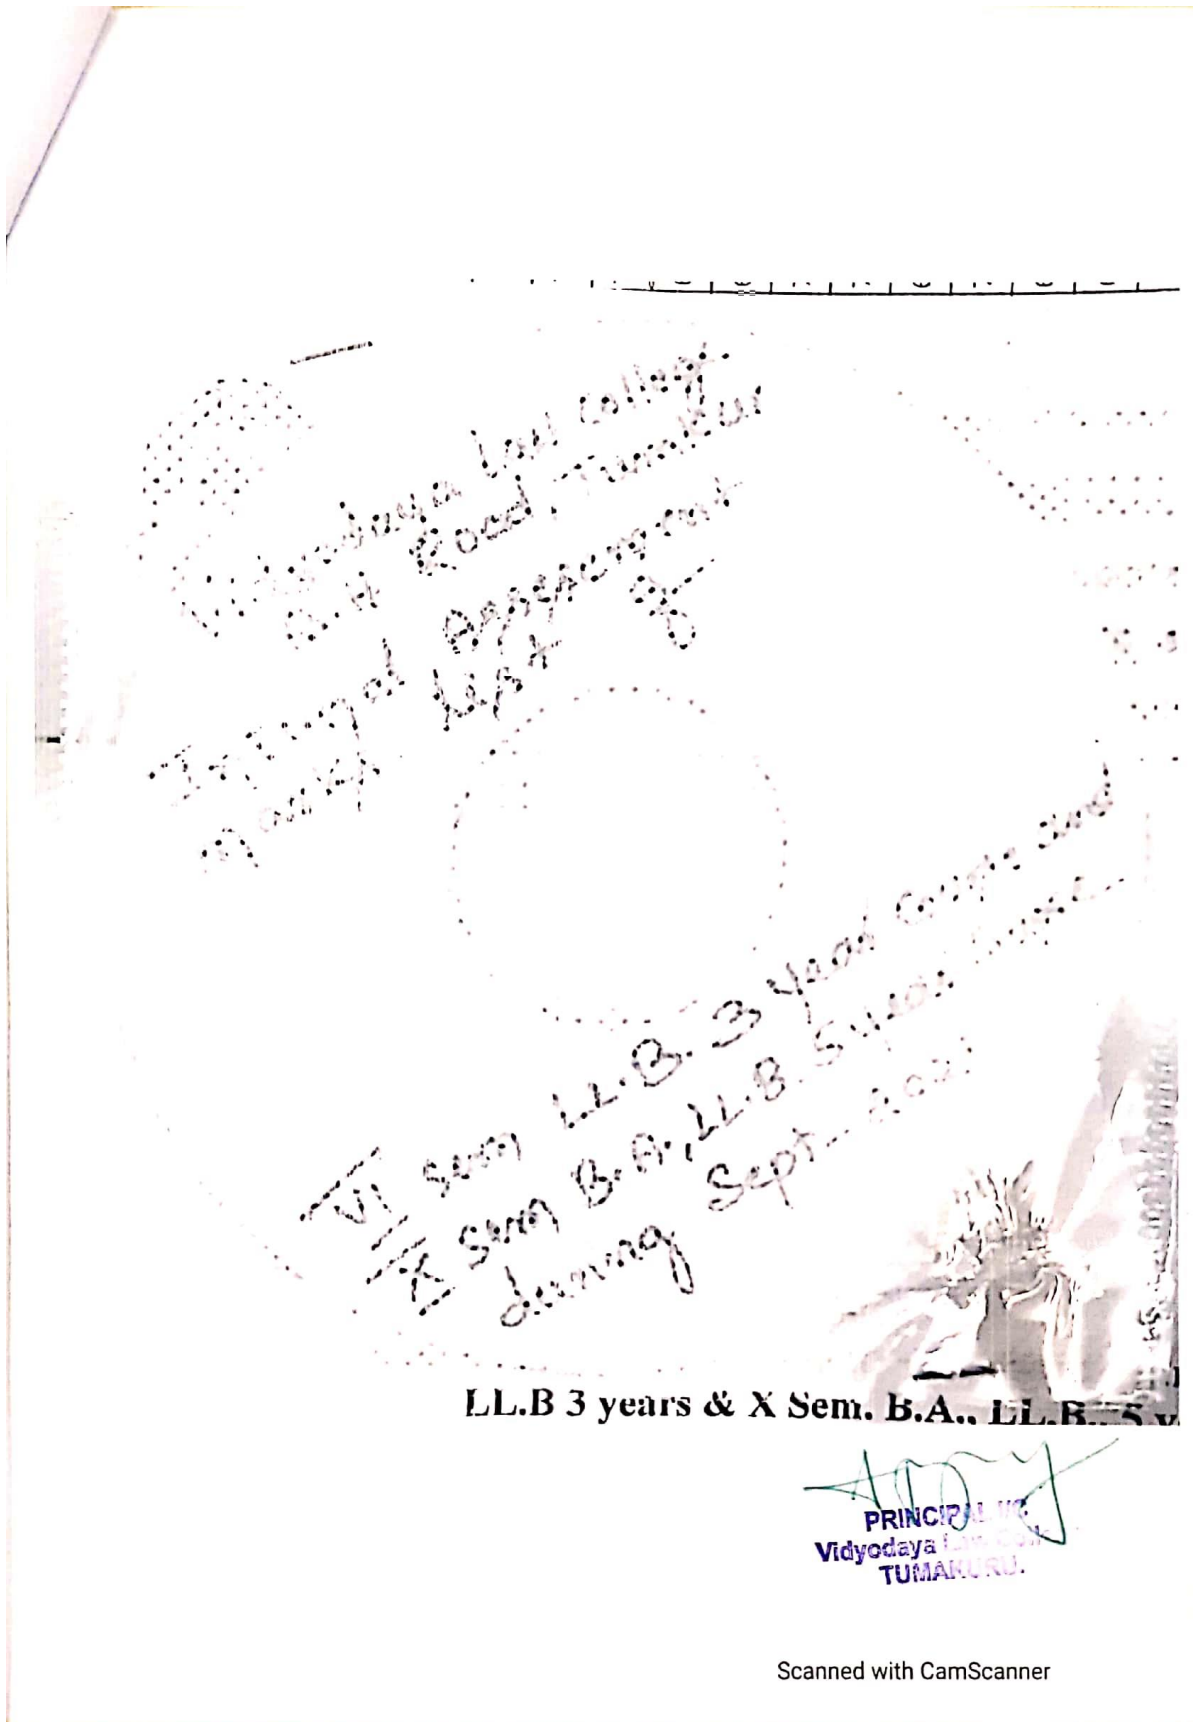 Vidyodaya Law College
B.H Road, Tumkur
Internal Assessment
Marks list of
VI Sem LL.B. 3 year Course and
X Sem B.A., LL.B. 5 year Course
during Sept - 2021
LL.B 3 years & X Sem. B.A., LL.B., 5 y
PRINCIPAL I/C
Vidyodaya Law Coll
TUMAKURU.
Scanned with CamScanner